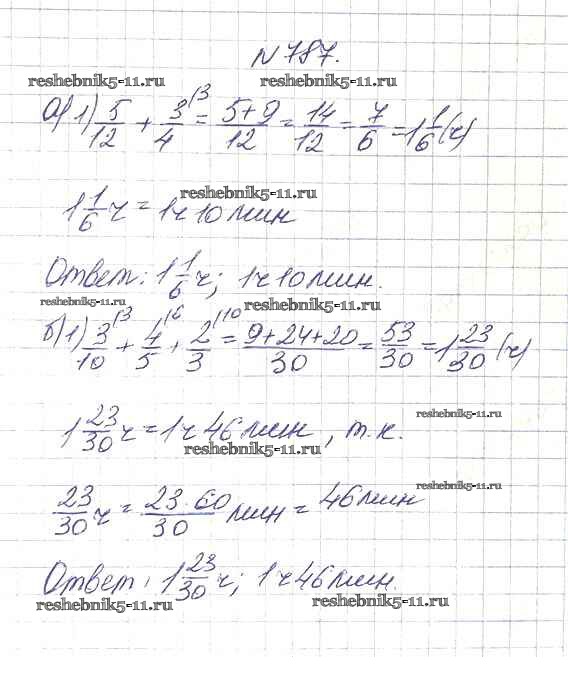 N 787.
reshebnik5-11.ru reshebnik5-11.ru
а) 1) 5/12 + 3/4 ⁽³ = 5+9/12 = 14/12 = 7/6 = 1 1/6 (ч)
reshebnik5-11.ru
1 1/6 ч = 1ч 10 мин
Ответ: 1 1/6 ч; 1ч 10 мин.
reshebnik5-11.ru reshebnik5-11.ru
б) 1) 3/10 ⁽³ + 4/5 ⁽⁶ + 2/3 ⁽¹⁰ = 9+24+20/30 = 53/30 = 1 23/30 (ч)
reshebnik5-11.ru
1 23/30 ч = 1ч 46 мин, т.к.
reshebnik5-11.ru
reshebnik5-11.ru
23/30 ч = 23·60/30 мин = 46 мин
Ответ: 1 23/30 ч; 1ч 46 мин.
reshebnik5-11.ru reshebnik5-11.ru